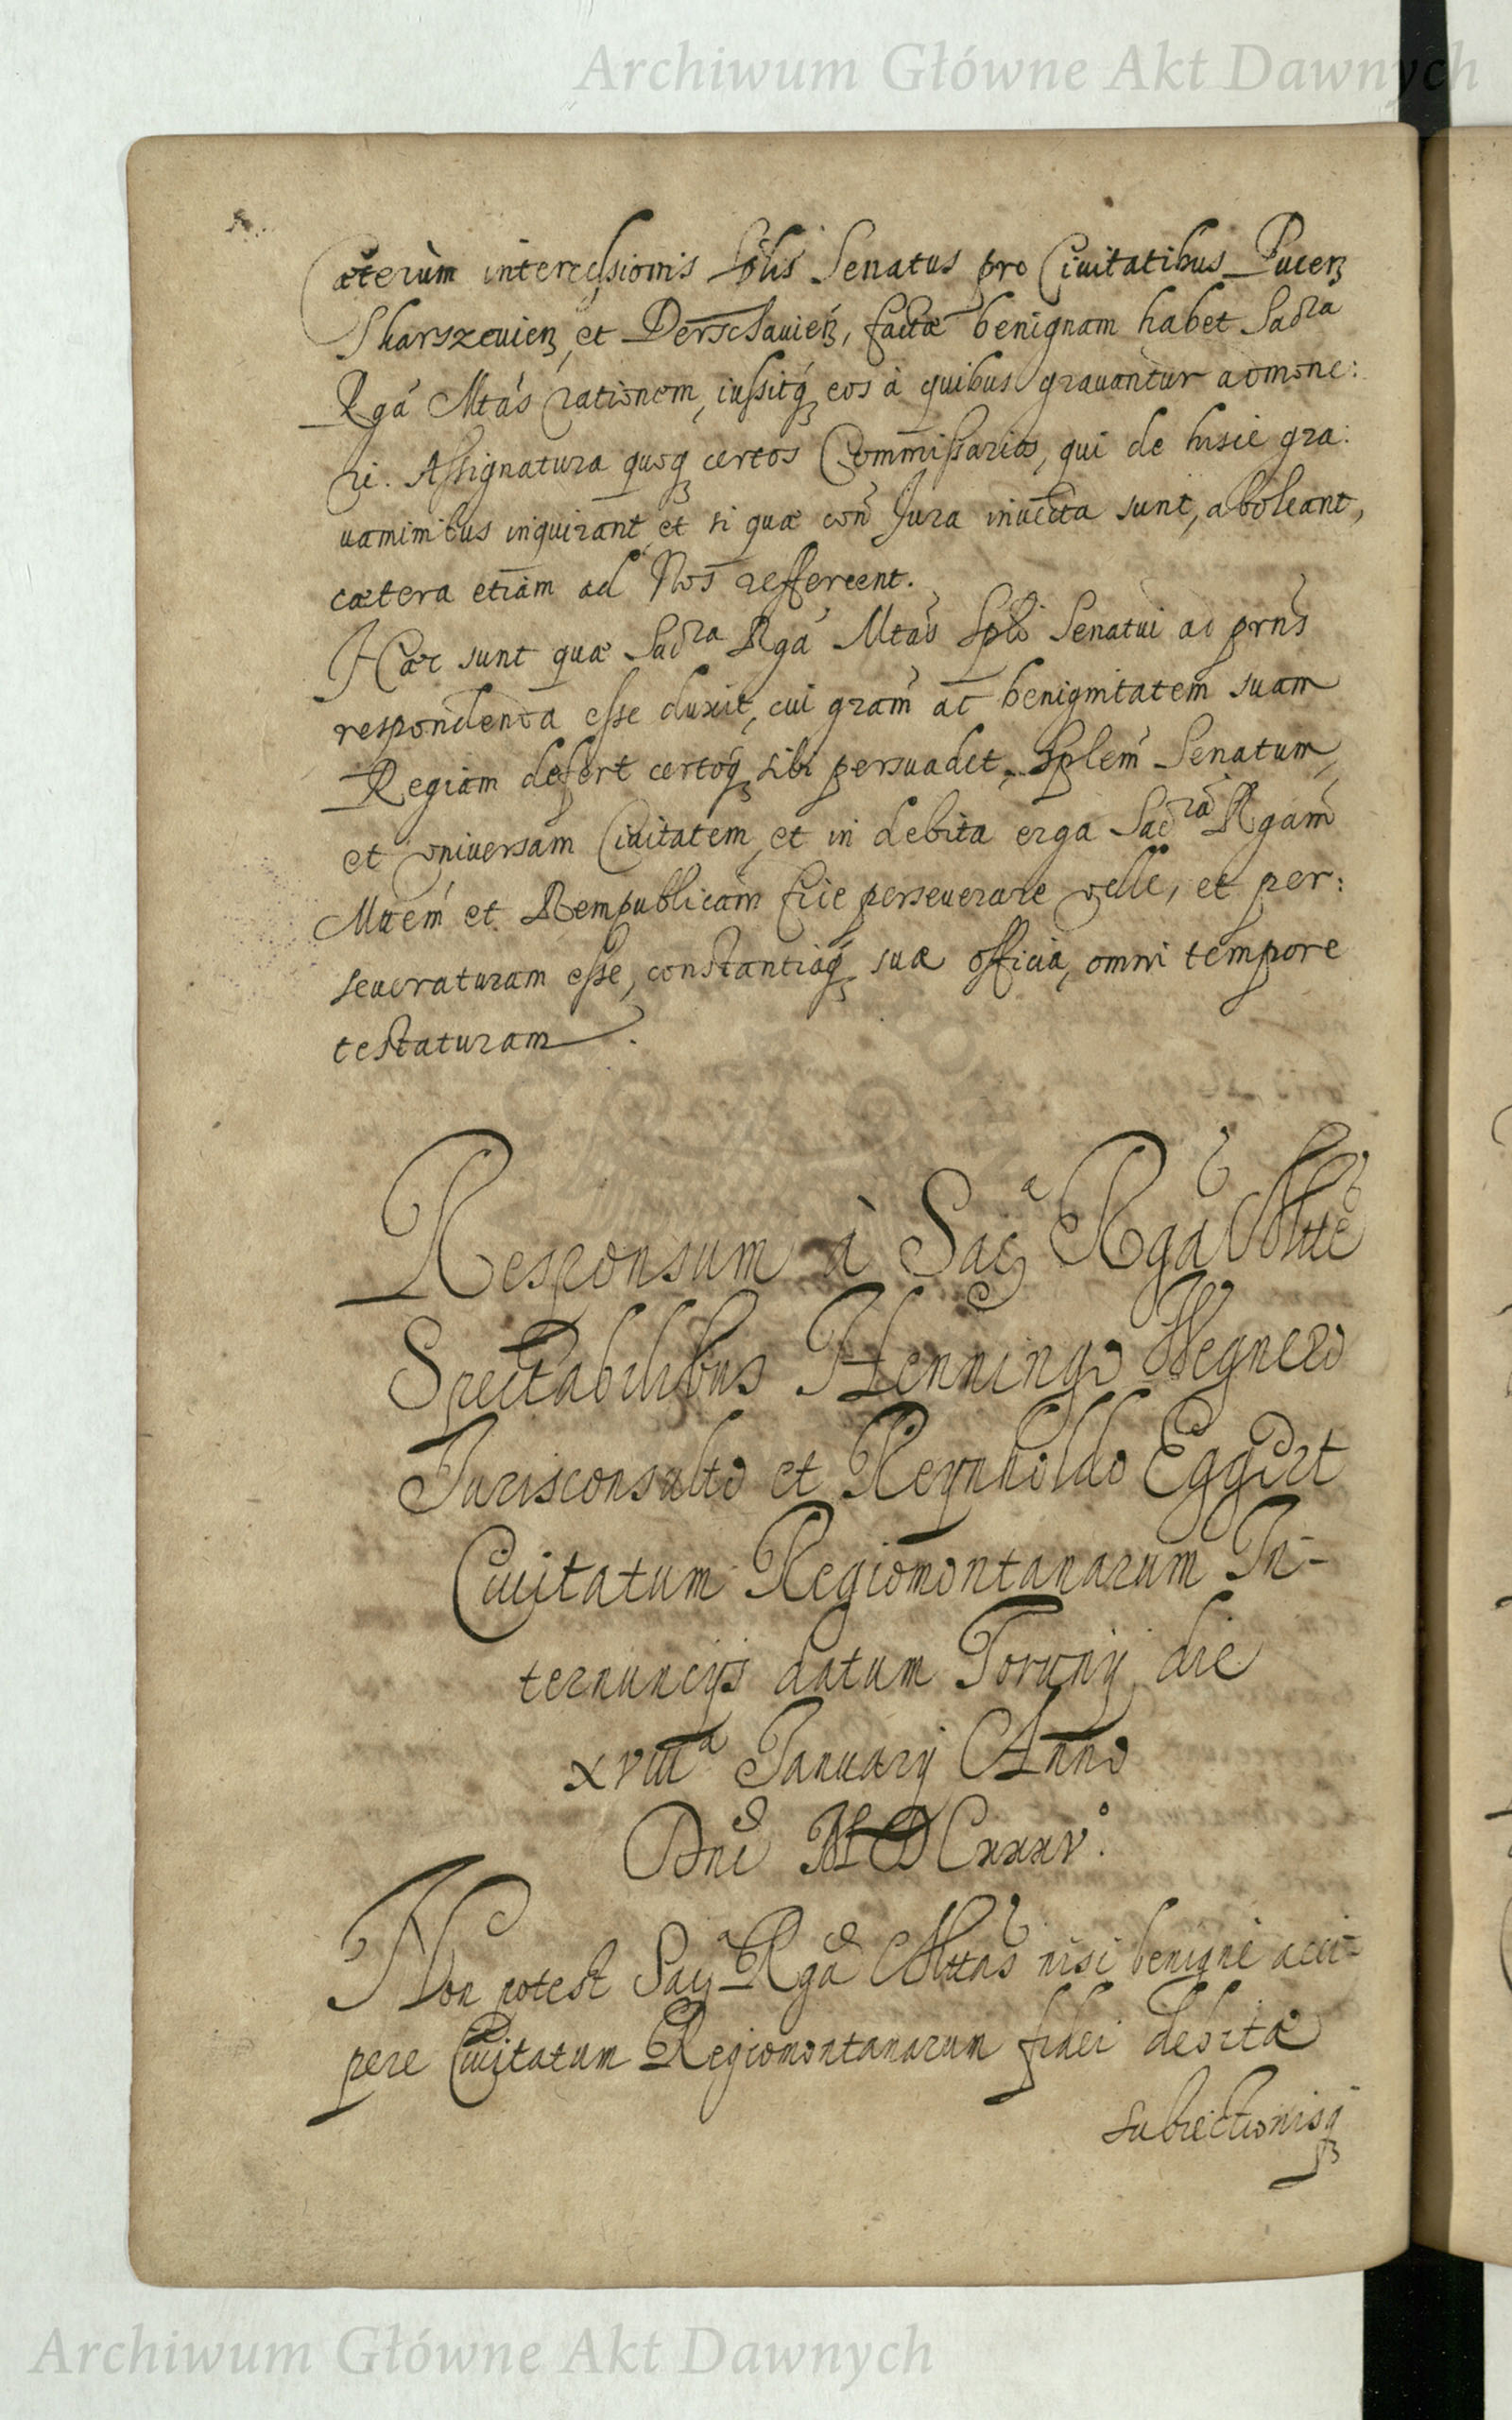 Archiwum Główne Akt Dawnych
Cæterùm intercessionis Splis Senatus pro Civitatibus Pucen
Skarszevien, et Derschavien, factæ benignam habet Sacra
Rga Mtas rationem, iussitq eos à quibus gravantur admone:
ri. Assignatura quoq certos Commissarios, qui de hisce gra:
vaminibus inquirant, et si quæ con Jura invecta sunt, aboleant,
cætera etiam ad Nos refferent.
Hæc sunt quæ Sacra Rga Mtas Spli Senatui ad prns
respondenda esse duxit, cui gram ac benignitatem suam
Regiam defert certoq sibi persuadet, Splem Senatum,
et universam Civitatem, et in debita erga Sacra Rgam
Mttem et Rempublicam fide perseverare velle, et per:
severaturam esse, constantiæq suæ officia, omni tempore
testaturam.
Responsum à Sac Rga Mtte
Spectabilibus Henningo Wegnero
Jurisconsulto et Reynholdo Eggert
Civitatum Regiomontanarum In-
ternuncijs datum Torunij die
XVIIIa Januarij Anno
Dni MDCxxxvo.
Non potest Sac Rga Mttas nisi benignè acci-
pere Civitatum Regiomontanarum fidei debitæ
subiectionisq
Archiwum Główne Akt Dawnych